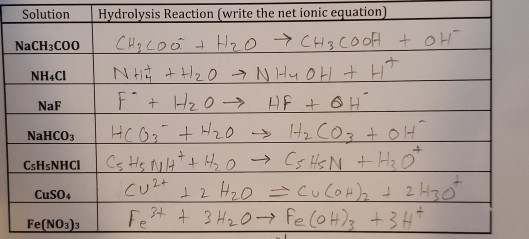 Solution Hydrolysis Reaction (write the net ionic equation)
NaCH₃COO CH₃COO⁻ + H₂O → CH₃COOH + OH⁻
NH₄Cl NH₄⁺ + H₂O → NH₄OH + H⁺
NaF F⁻ + H₂O → HF + OH⁻
NaHCO₃ HCO₃⁻ + H₂O → H₂CO₃ + OH⁻
C₅H₅NHCl C₅H₅NH⁺ + H₂O → C₅H₅N + H₃O⁺
CuSO₄ Cu²⁺ + 2 H₂O = Cu(OH)₂ + 2H₃O⁺
Fe(NO₃)₃ Fe³⁺ + 3H₂O → Fe(OH)₃ + 3H⁺